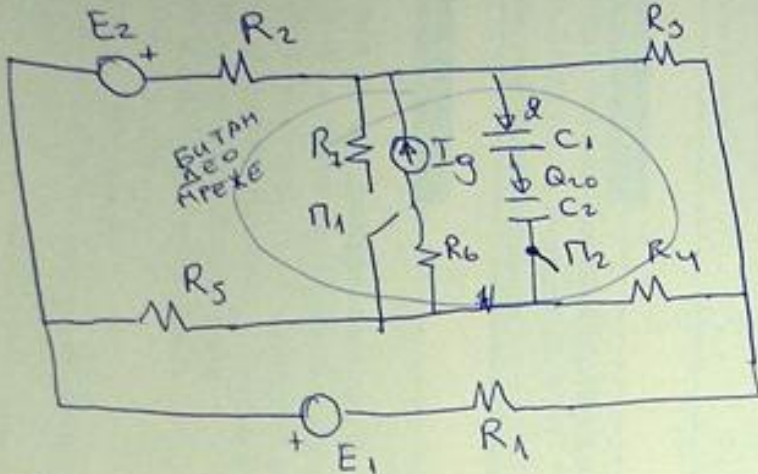 E2
+
R2
R3
БИТАН
ДЕО
МРЕЖЕ
R7
Ig
C1
Q20
C2
П1
R6
П2
R4
R5
+
E1
R1